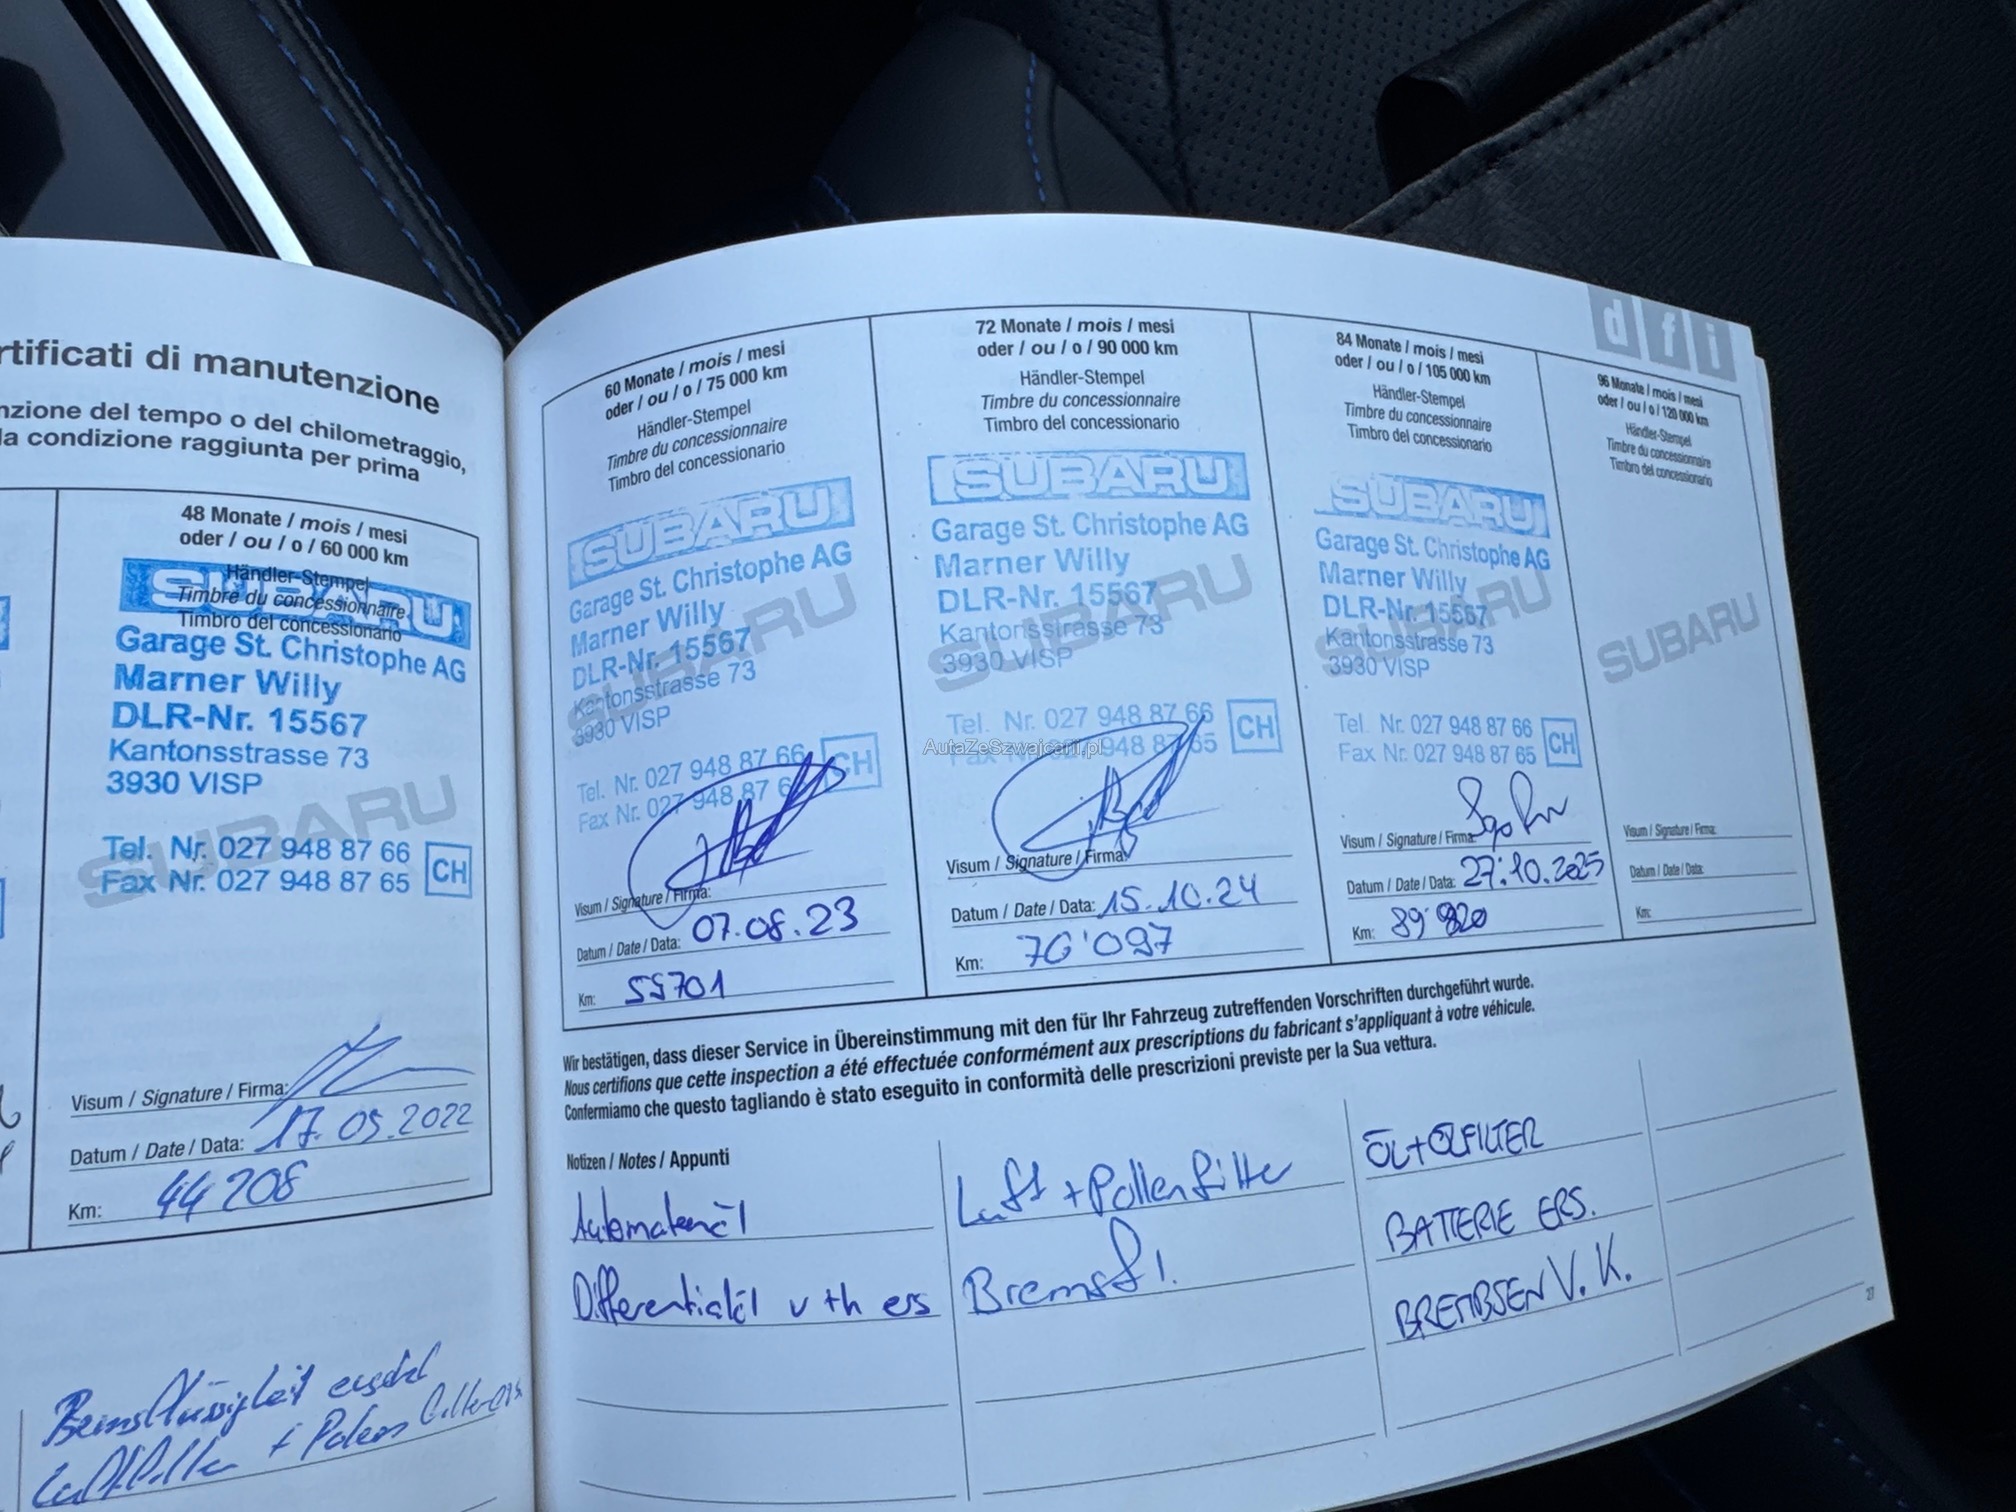 rtificati di manutenzione
nzione del tempo o del chilometraggio,
la condizione raggiunta per prima
48 Monate / mois / mesi
oder / ou / o / 60 000 km
Händler-Stempel
Timbre du concessionnaire
Timbro del concessionario
SUBARU
Garage St. Christophe AG
Marner Willy
DLR-Nr. 15567
Kantonsstrasse 73
3930 VISP
SUBARU
Tel. Nr. 027 948 87 66
Fax Nr. 027 948 87 65
CH
Visum / Signature / Firma:
Datum / Date / Data: 17.05.2022
Km: 44208
Bremsflüssigkeit ersetzt
Luftfilter + Pollenfilter ers.
d f i
60 Monate / mois / mesi
oder / ou / o / 75 000 km
Händler-Stempel
Timbre du concessionnaire
Timbro del concessionario
SUBARU
Garage St. Christophe AG
Marner Willy
DLR-Nr. 15567
Kantonsstrasse 73
3930 VISP
SUBARU
Tel. Nr. 027 948 87 66
Fax Nr. 027 948 87 6
CH
Visum / Signature / Firma:
Datum / Date / Data: 07.08.23
Km: 55701
72 Monate / mois / mesi
oder / ou / o / 90 000 km
Händler-Stempel
Timbre du concessionnaire
Timbro del concessionario
SUBARU
Garage St. Christophe AG
Marner Willy
DLR-Nr. 15567
Kantonsstrasse 73
3930 VISP
SUBARU
Tel. Nr. 027 948 87 66
Fax Nr. 027 948 87 65
CH
AutaZeSzwajcarii.pl
Visum / Signature / Firma:
Datum / Date / Data: 15.10.24
Km: 70'097
84 Monate / mois / mesi
oder / ou / o / 105 000 km
Händler-Stempel
Timbre du concessionnaire
Timbro del concessionario
SUBARU
Garage St. Christophe AG
Marner Willy
DLR-Nr. 15567
Kantonsstrasse 73
3930 VISP
SUBARU
Tel. Nr. 027 948 87 66
Fax Nr. 027 948 87 65
CH
Visum / Signature / Firma:
Datum / Date / Data: 27.10.2025
Km: 89'820
96 Monate / mois / mesi
oder / ou / o / 120 000 km
Händler-Stempel
Timbre du concessionnaire
Timbro del concessionario
SUBARU
Visum / Signature / Firma:
Datum / Date / Data:
Km:
Wir bestätigen, dass dieser Service in Übereinstimmung mit den für Ihr Fahrzeug zutreffenden Vorschriften durchgeführt wurde.
Nous certifions que cette inspection a été effectuée conformément aux prescriptions du fabricant s'appliquant à votre véhicule.
Confermiamo che questo tagliando è stato eseguito in conformità delle prescrizioni previste per la Sua vettura.
Notizen / Notes / Appunti
Automatenöl
Differentialöl v+h ers
Luft + Pollenfilter
Bremsfl.
ÖL+ÖLFILTER
BATTERIE ERS.
BREMBSEN V. K.
27